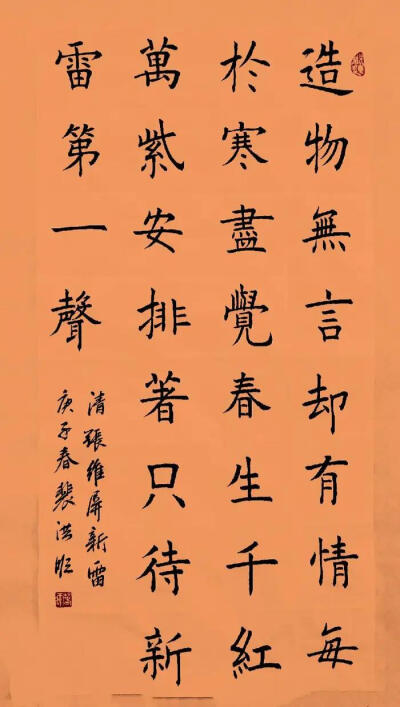 造物無言却有情每
於寒盡覺春生千紅
萬紫安排著只待新
雷第一聲
清張維屏新雷
庚子春裴洪